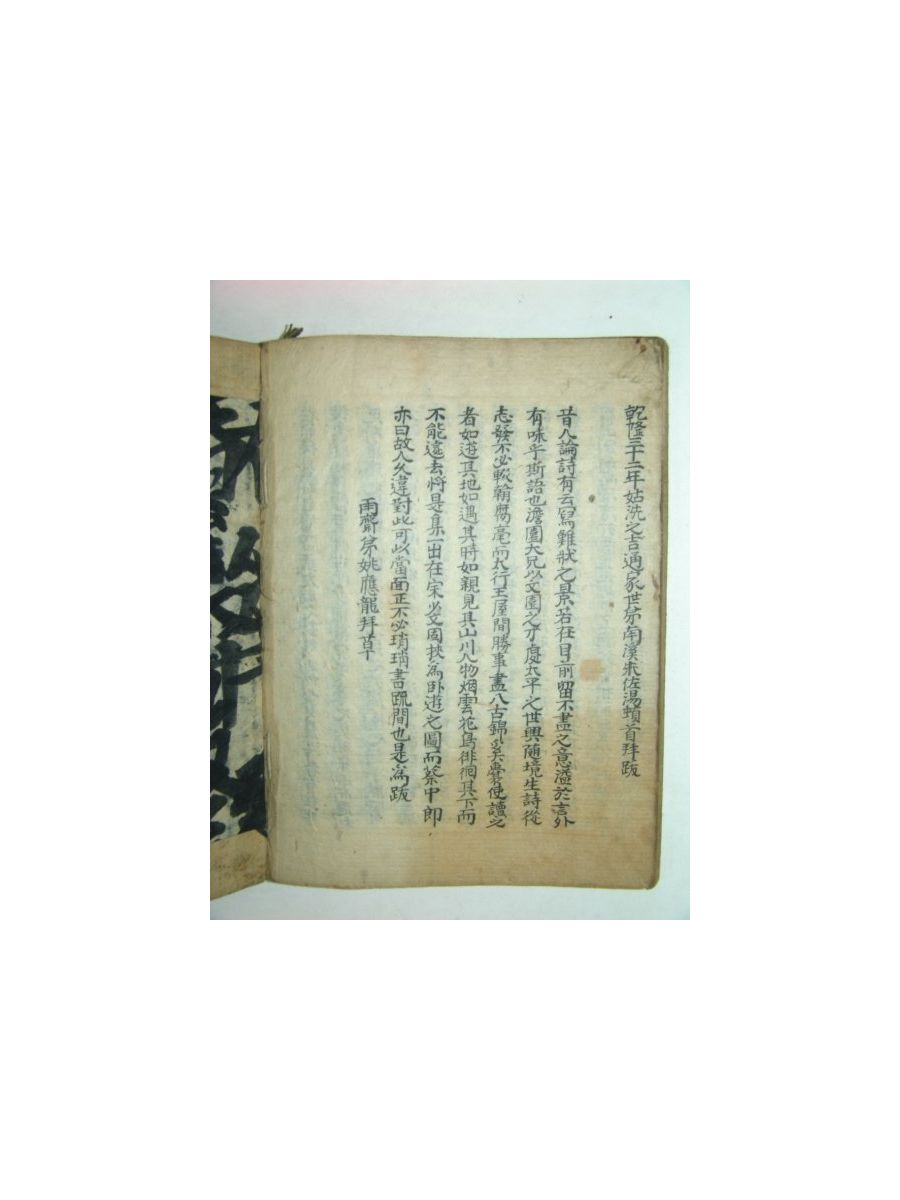 乾隆三十二年姑洗之吉通家世弟南溪朱佐湯頓首拜跋
昔人論詩有云寫難狀之景若在目前留不盡之意溢於言外
有味乎斯語也澹園大兄以文園之才度太平之世興隨境生詩從
志發不必輭翰腐毫而太行王屋間勝事盡入古錦奚囊使讀之
者如遊其地如遇其時如親見其山川人物烟雲花鳥徘徊其下而
不能遠去將是集一出在宋必文周挾為卧遊之圖而蔡中郎
亦曰故人久違對此可以當面正不必瑣瑣書䟽間也是為跋
雨齋弟姚應龍拜草